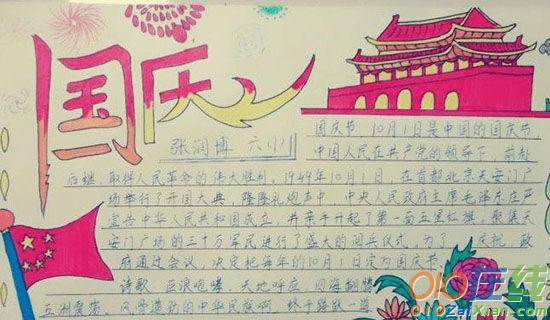 国庆
张润博 六(1)
国庆节,10月1日是中国的国庆节,
中国人民在共产党的领导下,前赴
后继,取得人民革命的伟大胜利,1949年10月1日,在首都北京天安门广
场举行了开国大典,隆隆礼炮声中,中央人民政府主席毛泽东庄严
宣告中华人民共和国成立,并亲手升起了第一面五星红旗,聚集天
安门广场的三十万军民进行了盛大的阅兵仪式,为了 庆祝,政
府通过会议,决定把每年的10月1日定为国庆节。
诗歌,巨浪咆哮,天地呼应,四海翻腾
五洲震荡,风雷激动的中华民族啊,终于踏
在线
ZaiXian.com